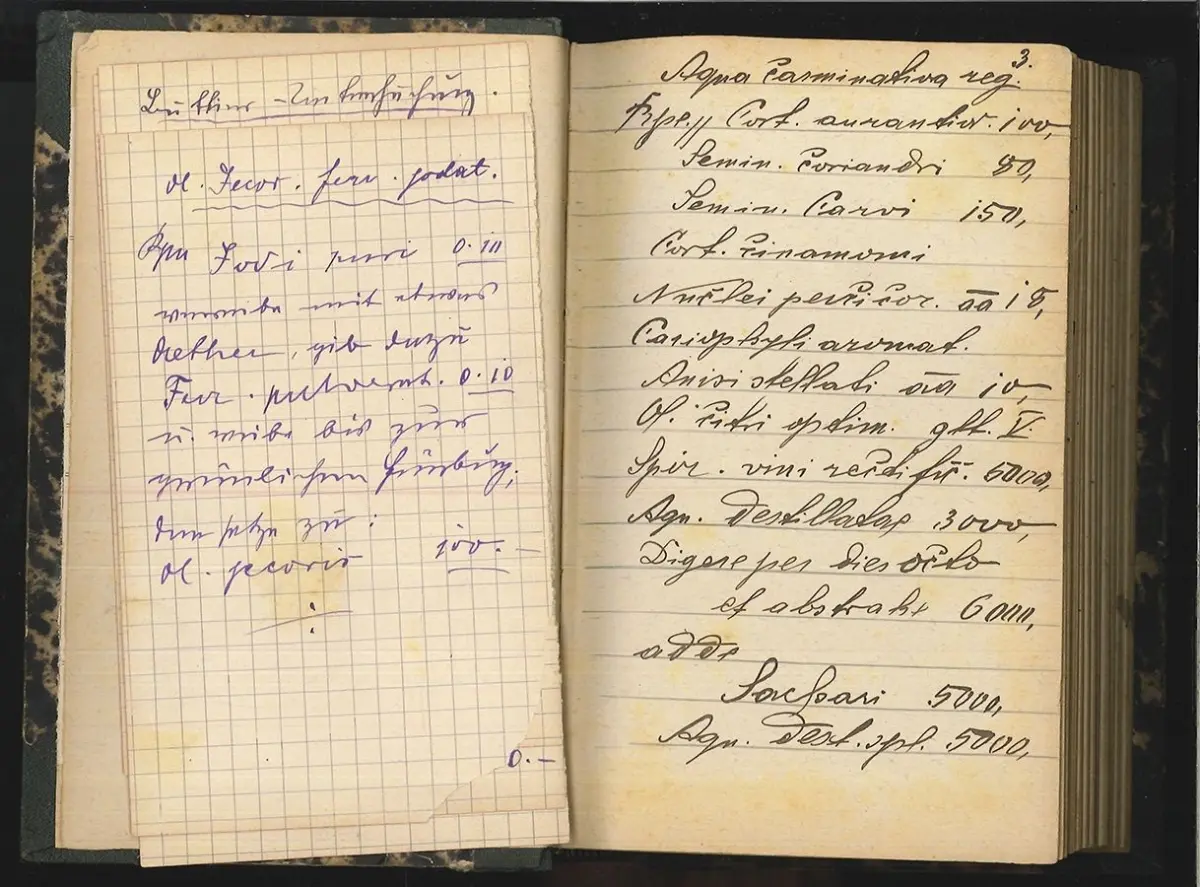 Butter-Untersuchung.
Ol. Jecor. ferr. jodat.
Rpu Jodi puri 0.10
verreibe mit etwas
Aether, gib dazu
Ferr. pulverat. 0.10
u. reibe bis zur
grünlichen Färbung,
dann setze zu:
Ol. jecoris 100.—
0.—
3.
Aqua Carminativa reg.
Rpe.// Cort. aurantior. 100,
Semin. Coriandri 80,
Semin. Carvi 150,
Cort. Cinamomi
Nuclei persicor. āā 18,
Cariophyli aromat.
Anisi stellati āā 10,
Ol. Citri optim. gtt. V
Spir. vini rectific. 5000,
Aqu. Destillatae 3000,
Digere per dies octo
et abstrahe 6000,
adde
Sachari 5000,
Aqu. Dest. spl. 5000,